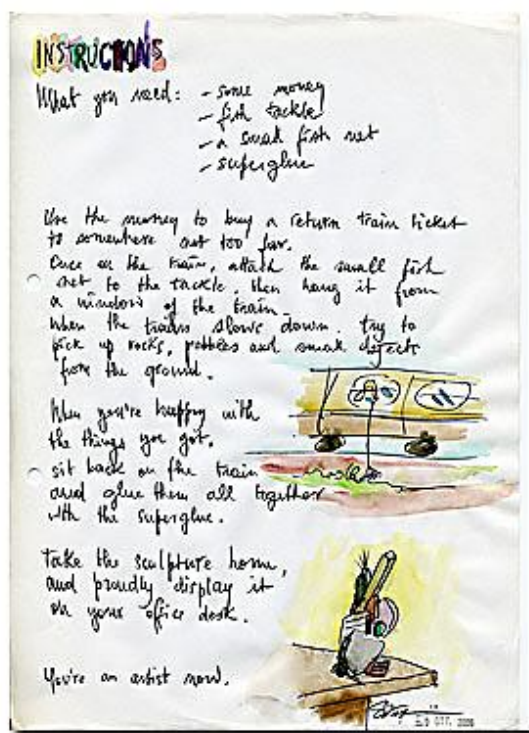 INSTRUCTIONS
What you need: - some money
- fish tackle
- a small fish net
- superglue
Use the money to buy a return train ticket
to somewhere not too far.
Once on the train, attach the small fish
net to the tackle, then hang it from
a window of the train.
When the train slows down, try to
pick up rocks, pebbles and small objects
from the ground.
When you're happy with
the things you got,
sit back on the train
and glue them all together
with the superglue.
Take the sculpture home,
and proudly display it
on your office desk.
You're an artist now.
OTT.